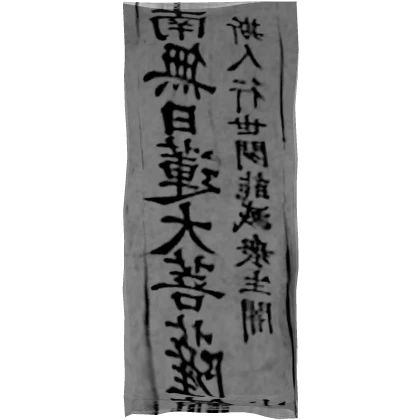 南無日蓮大菩薩
斯人行世間能滅衆生闇